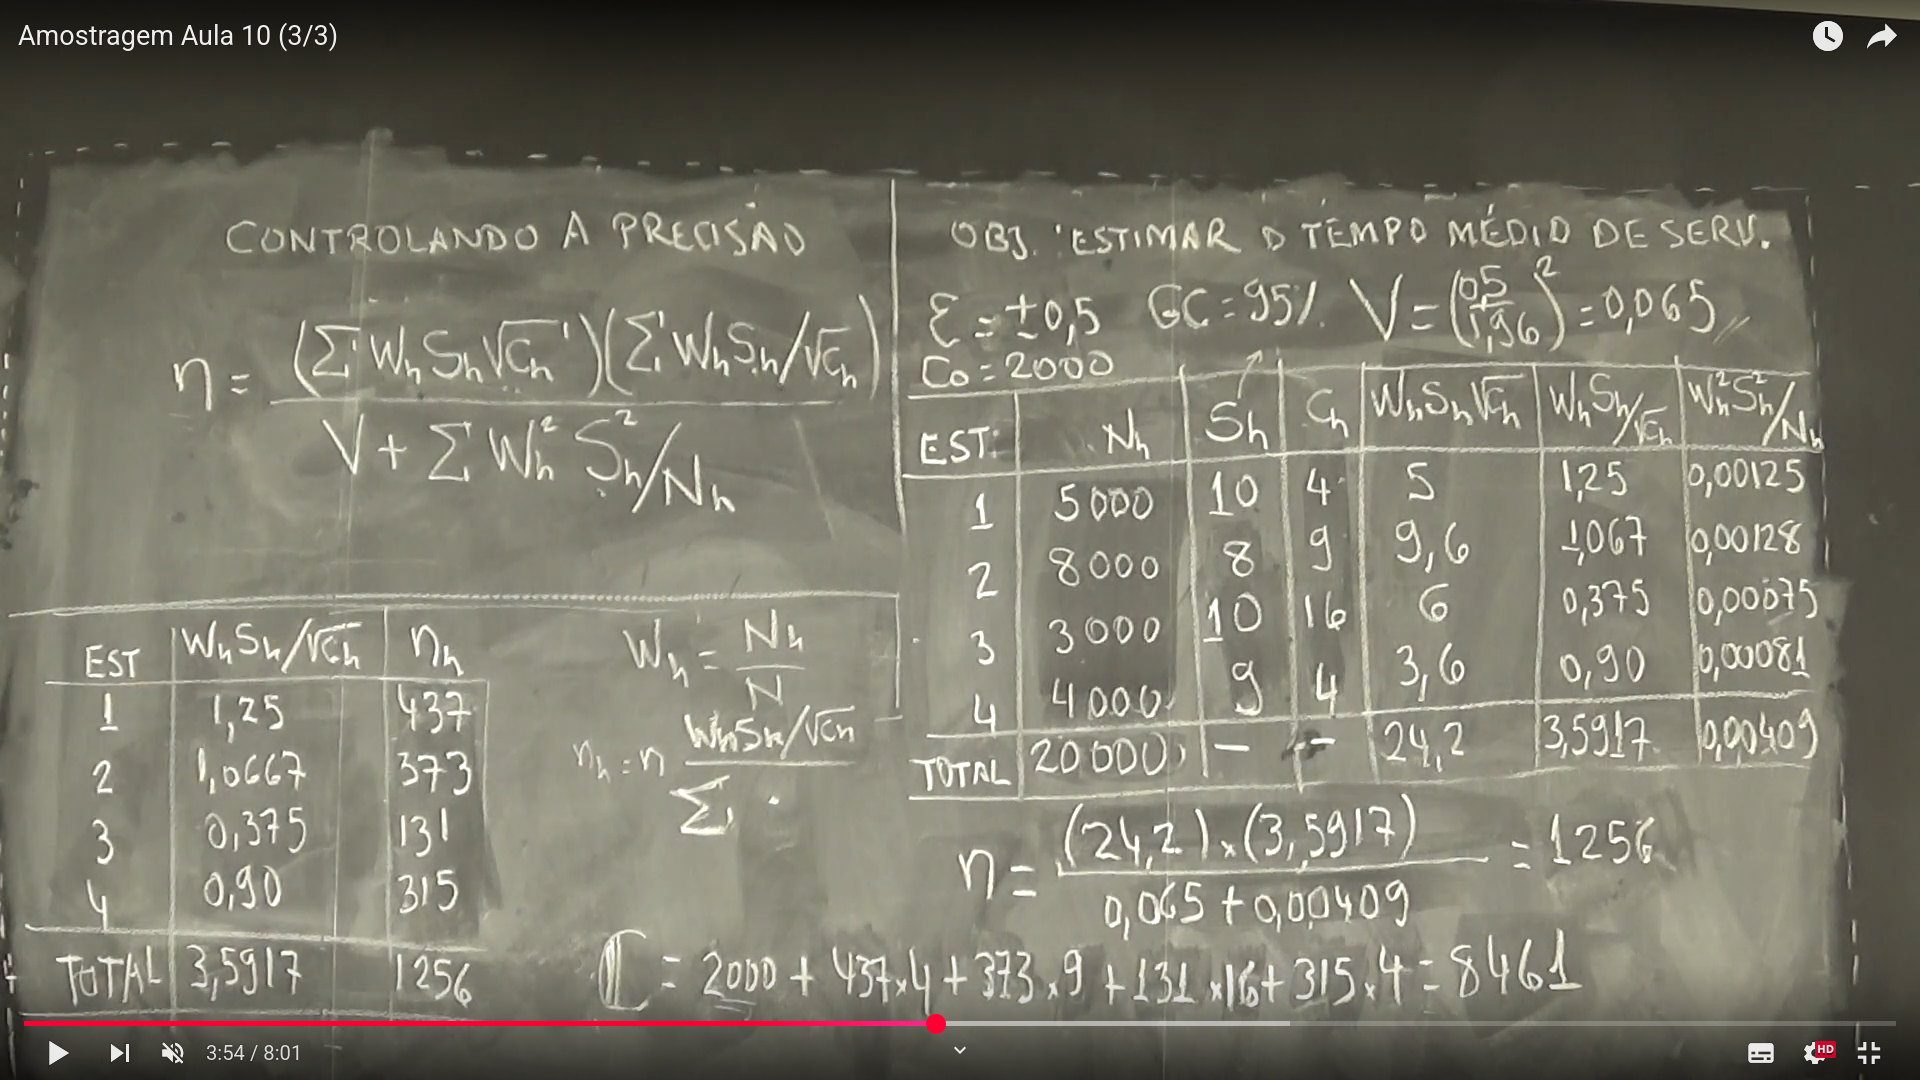 Amostragem Aula 10 (3/3)
CONTROLANDO A PRECISÃO
n = (Σ Wh Sh √Ch)(Σ Wh Sh/√Ch)
V + Σ Wh² Sh²/Nh
EST Wh Sh/√Ch nh
1 1,25 437
2 1,0667 373
3 0,375 131
4 0,90 315
TOTAL 3,5917 1256
Wh = Nh
N
nh = n Wh Sh/√Ch
Σ .
OBJ. : ESTIMAR O TEMPO MÉDIO DE SERV.
ε = ±0,5 GC = 95% V = (0,5/1,96)² = 0,065
Co = 2000
EST. Nh Sh Ch Wh Sh √Ch Wh Sh/√Ch Wh² Sh²/Nh
1 5000 10 4 5 1,25 0,00125
2 8000 8 9 9,6 1,067 0,00128
3 3000 10 16 6 0,375 0,00075
4 4000 9 4 3,6 0,90 0,00081
TOTAL 20000 – – 24,2 3,5917 0,00409
n = (24,2)×(3,5917) = 1256
0,065 + 0,00409
C = 2000 + 437×4 + 373×9 + 131×16 + 315×4 = 8461
3:54 / 8:01
HD